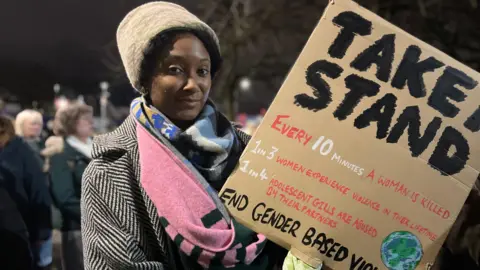 TAKE A
STAND
EVERY 10 MINUTES A WOMAN IS KILLED
1 IN 3 WOMEN EXPERIENCE VIOLENCE IN THEIR LIFETIMES
1 IN 4 ADOLESCENT GIRLS ARE ABUSED
BY THEIR PARTNERS
END GENDER BASED VIO